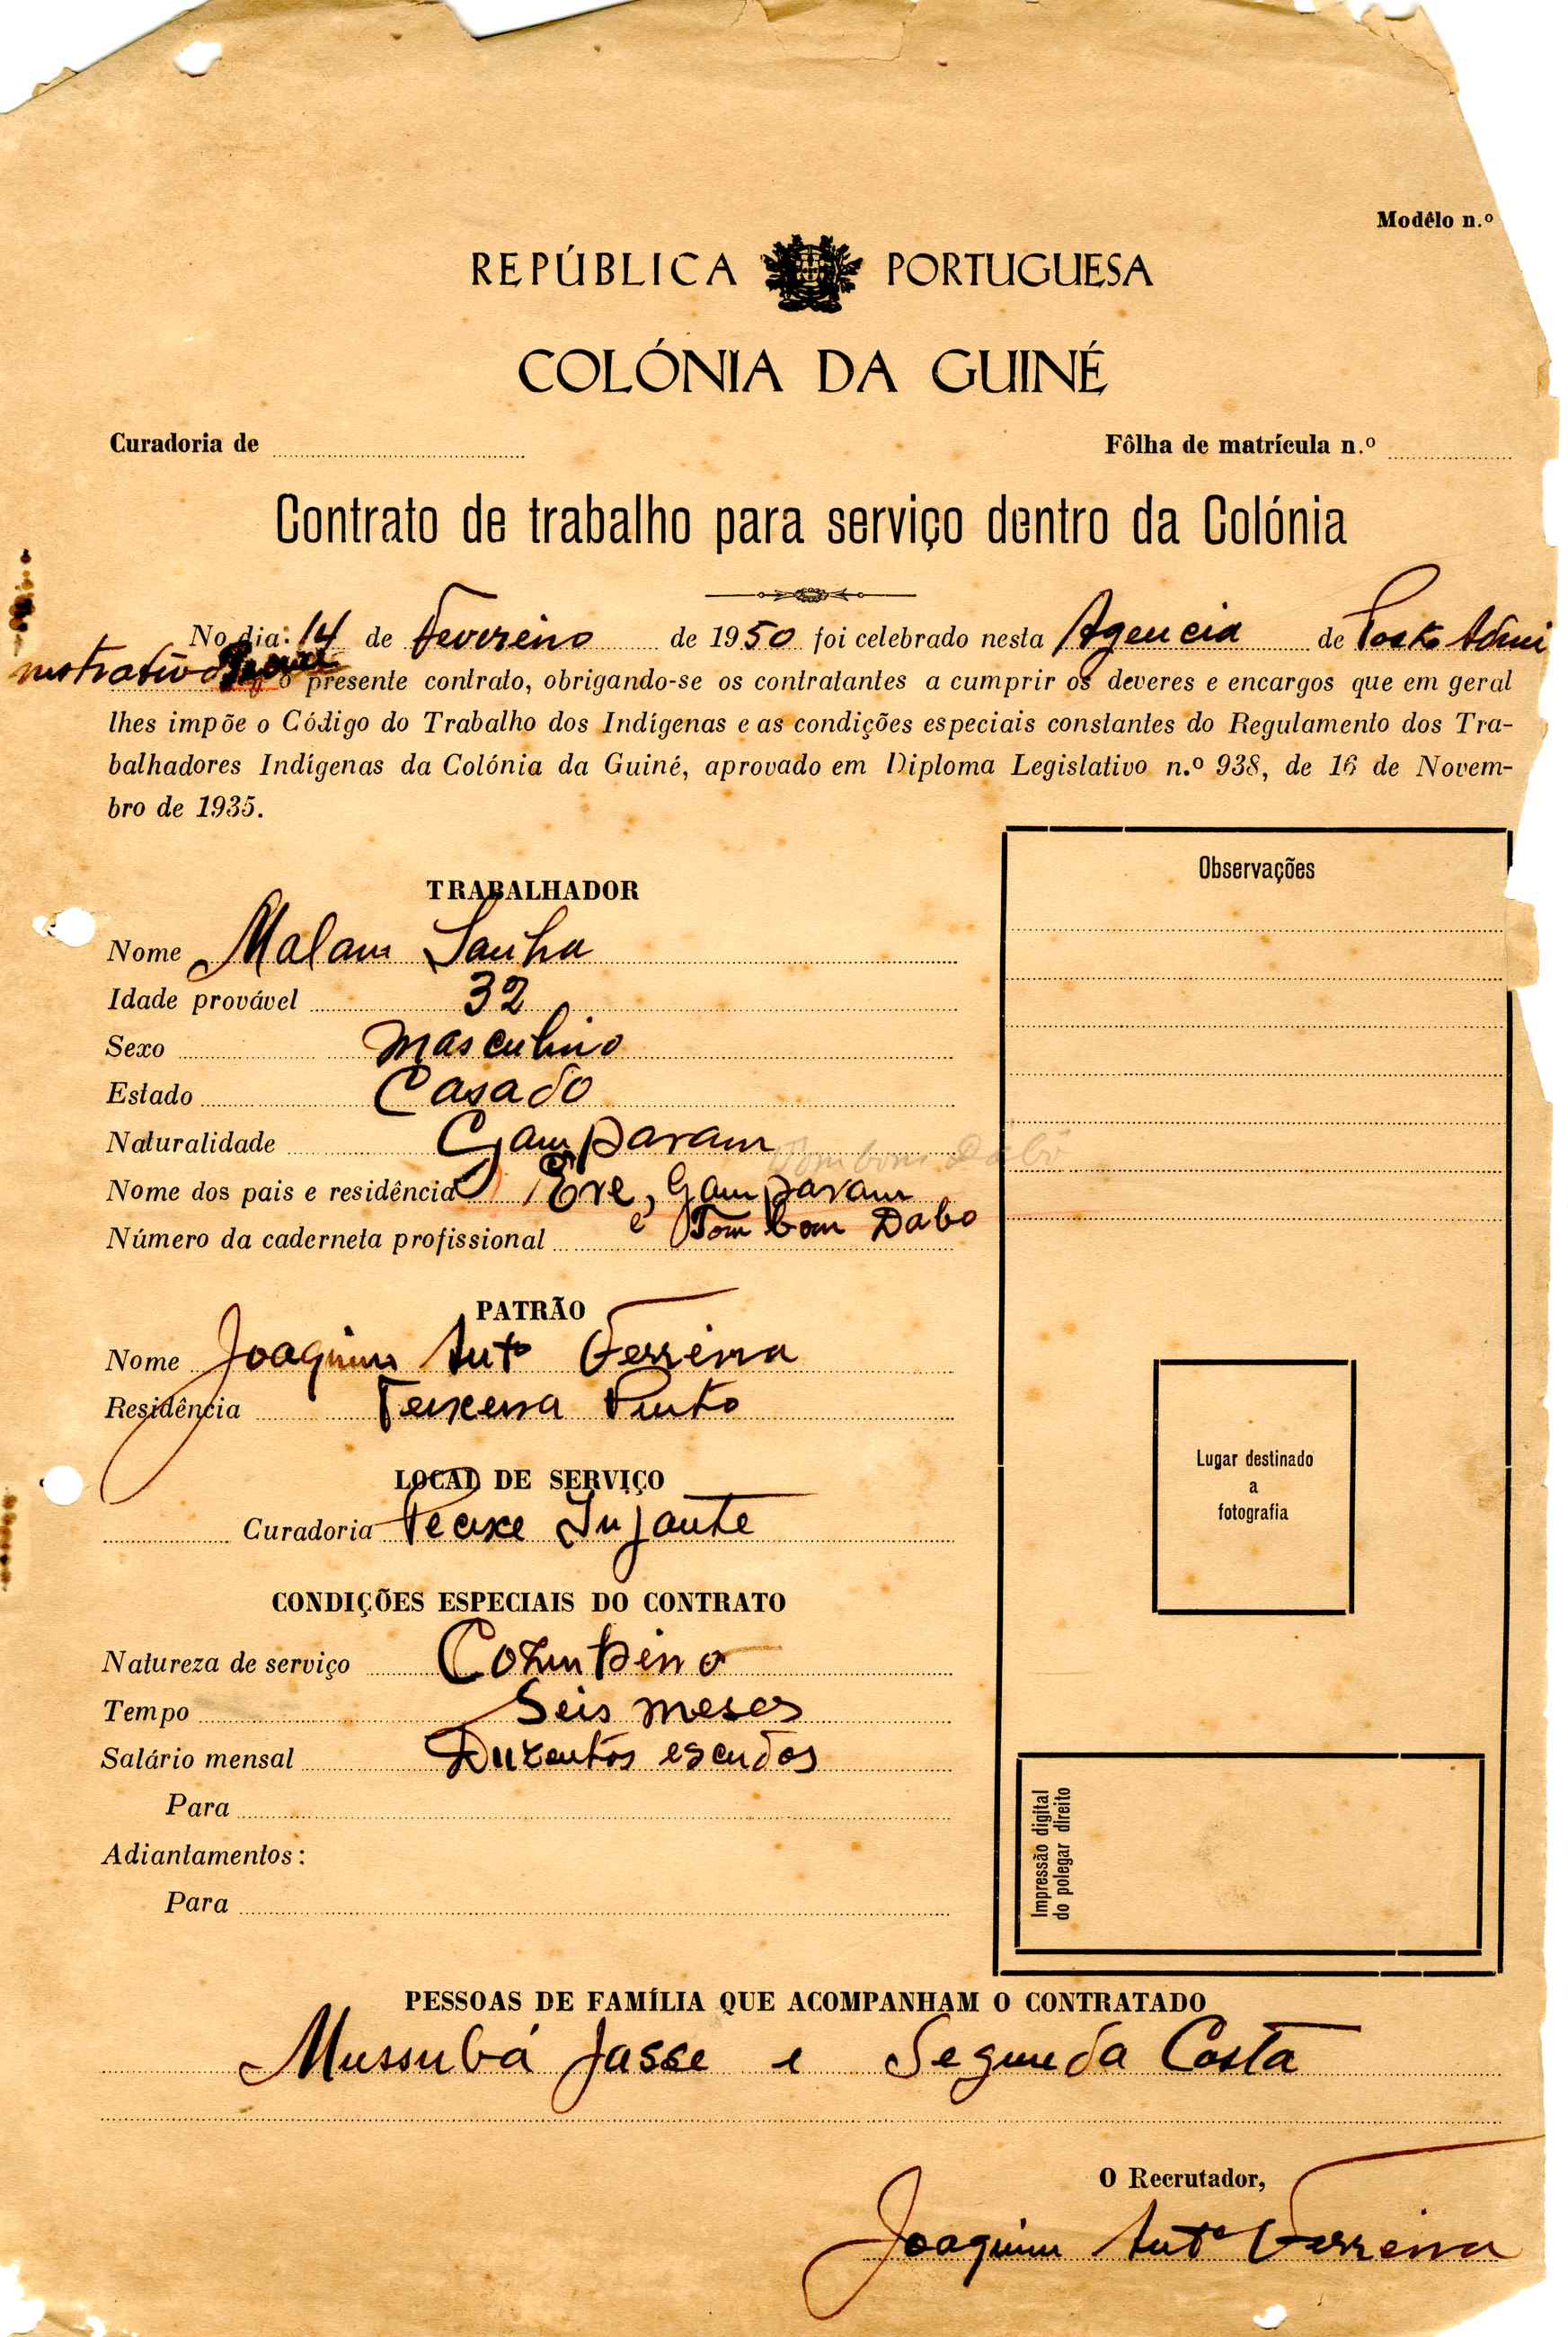 Modêlo n.º
REPÚBLICA PORTUGUESA
COLÓNIA DA GUINÉ
Curadoria de
Fôlha de matrícula n.º
Contrato de trabalho para serviço dentro da Colónia
No dia: 14 de Fevereiro de 1950 foi celebrado nesta Agencia de Posto Admi
nistrativo o presente contrato, obrigando-se os contratantes a cumprir os deveres e encargos que em geral
lhes impõe o Código do Trabalho dos Indígenas e as condições especiais constantes do Regulamento dos Tra-
balhadores Indígenas da Colónia da Guiné, aprovado em Diploma Legislativo n.º 938, de 16 de Novem-
bro de 1935.
Observações
TRABALHADOR
Nome Malam Sanha
Idade provável 32
Sexo masculino
Estado Casado
Naturalidade Gamparam
Tombom Dabó
Nome dos pais e residência Ere, Gamparam
e Tom bom Dabo
Número da caderneta profissional
PATRÃO
Nome Joaquim Antº Ferreira
Residência Teixeira Pinto
LOCAL DE SERVIÇO
Curadoria Pecixe Infante
Lugar destinado
a
fotografia
CONDIÇÕES ESPECIAIS DO CONTRATO
Natureza de serviço
Tempo Seis meses
Salário mensal Duzentos escudos
Para
Adiantamentos:
Para
Impressão digital
do polegar direito
PESSOAS DE FAMÍLIA QUE ACOMPANHAM O CONTRATADO
Mussubá Jasse e Segunda Costa
O Recrutador,
Joaquim Antº Ferreira